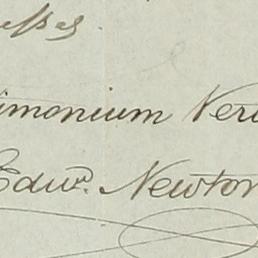 imonium Veri
Edwd. Newton